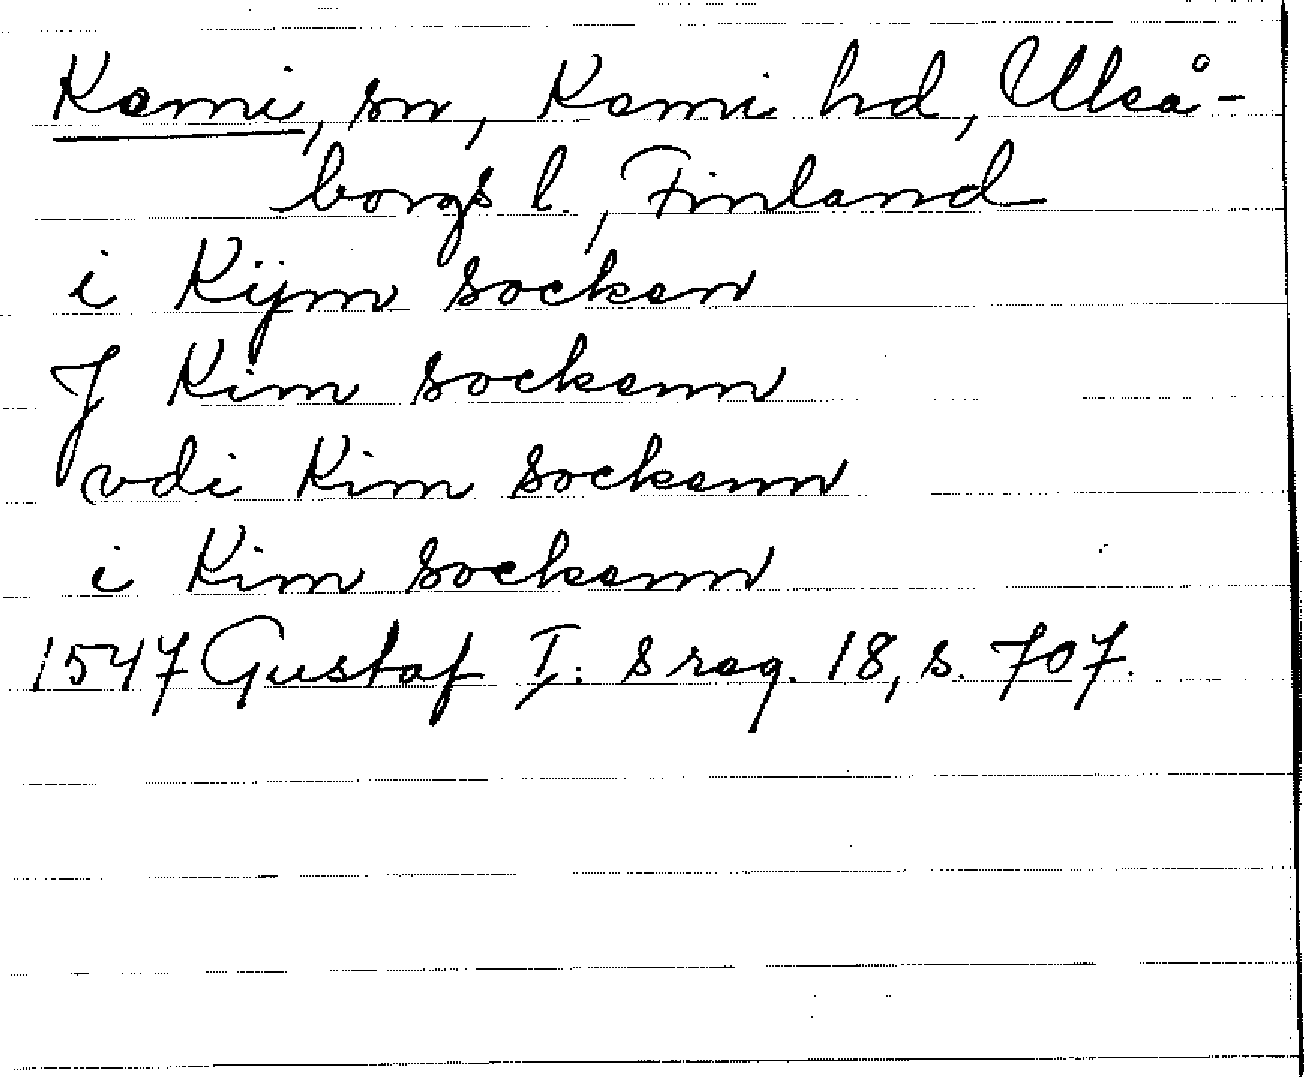 Kemi, sn, Kemi hd, Uleå-
borgs l., Finland
i Kijm socken
J Kim sockenn
vdi Kim sockenn
i Kim sockenn
1547 Gustaf I:s reg. 18, s. 707.